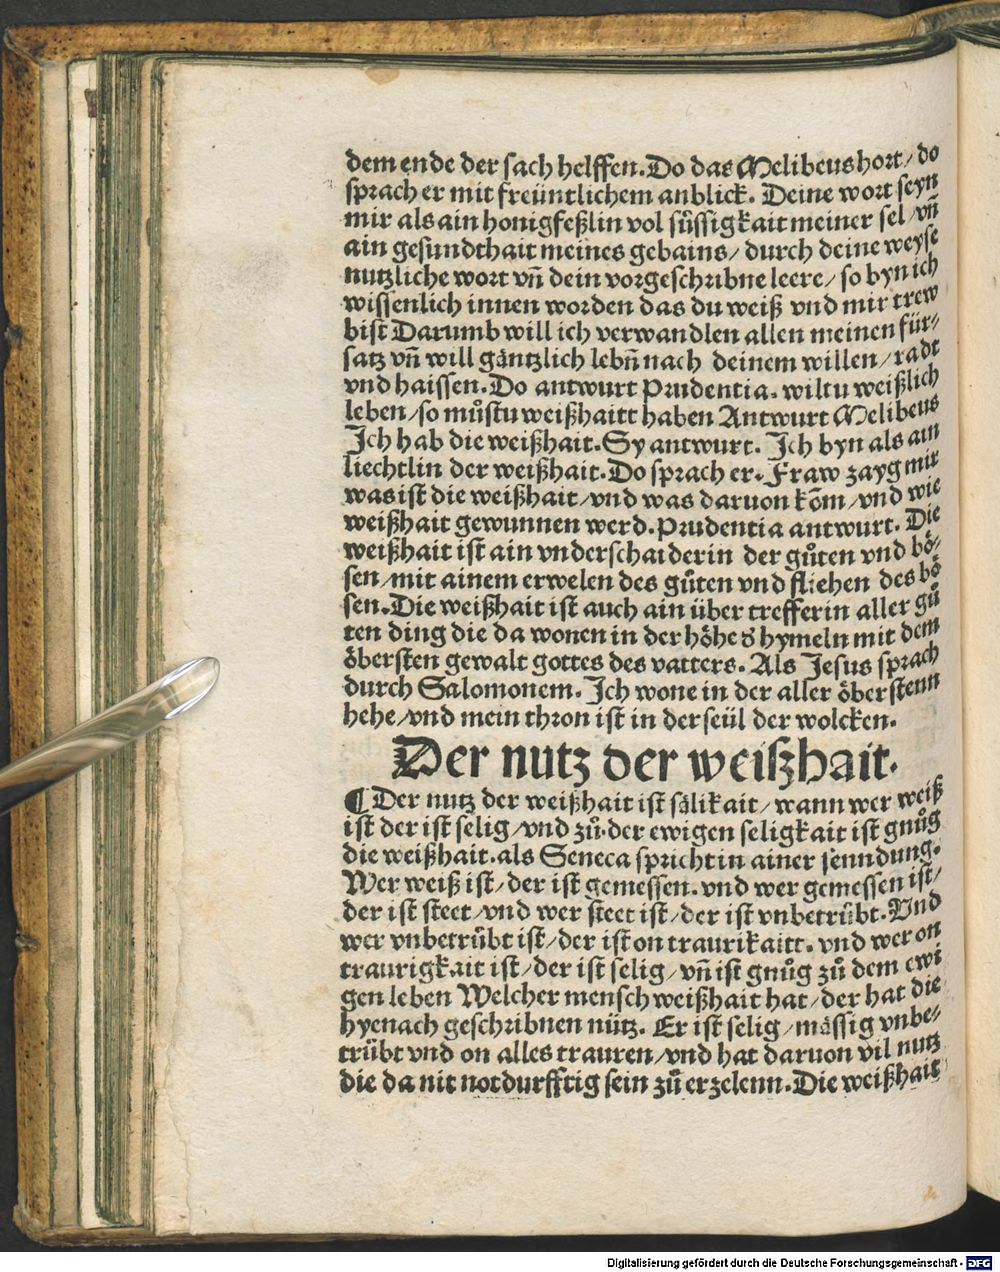 dem ende der sach helffen. Do das Melibeus hort / do
sprach er mit freüntlichem anblick. Deine wort seyn
mir als ain honigfeßlin vol süssigkait meiner sel / vn̄
ain gesundthait meines gebains / durch deine weyse
nutzliche wort vn̄ dein vorgeschribne leere / so byn ich
wissenlich innen worden das du weiß vnd mir trew
bist Darumb will ich verwandlen allen meinen für⸗
satz vn̄ will gäntzlich lebn̄ nach deinem willen / radt
vnd haissen. Do antwurt Prudentia. wiltu weißlich
leben / so můstu weißhaitt haben Antwurt Melibeus
Ich hab die weißhait. Sy antwurt. Ich byn als ain
liechtlin der weißhait. Do sprach er. Fraw zayg mir
was ist die weißhait / vnd was daruon kōm / vnd wie
weißhait gewunnen werd. Prudentia antwurt. Die
weißhait ist ain vnderschaiderin der gůten vnd bö⸗
sen / mit ainem erwelen des gůten vnd fliehen des bö
sen. Die weißhait ist auch ain über trefferin aller gů
ten ding die da wonen in der höhe d̕ hymeln mit dem
öbersten gewalt gottes des vatters. Als Jesus sprach
durch Salomonem. Ich wone in der aller öberstenn
hehe / vnd mein thron ist in der seül der wolcken.
Der nutz der weißhait.
¶ Der nutz der weißhait ist sälikait / wann wer weiß
ist der ist selig / vnd zů der ewigen seligkait ist gnůg
die weißhait. als Seneca spricht in ainer senndung.
Wer weiß ist / der ist gemessen. vnd wer gemessen ist /
der ist steet / vnd wer steet ist / der ist vnbetrübt. Vnd
wer vnbetrübt ist / der ist on traurikaitt. vnd wer on
traurigkait ist / der ist selig / vn̄ ist gnůg zů dem ewi
gen leben Welcher mensch weißhait hat / der hat die
hyenach geschribnen nütz. Er ist selig / mässig vnbe⸗
trübt vnd on alles trauren / vnd hat daruon vil nutz
die da nit notdurfftig sein zů erzelenn. Die weißhait
Digitalisierung gefördert durch die Deutsche Forschungsgemeinschaft - DFG